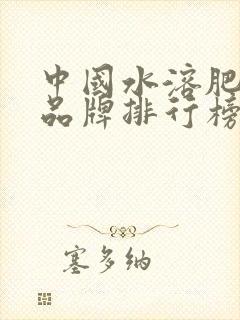 中國水溶肥
品牌排行榜
塞多纳